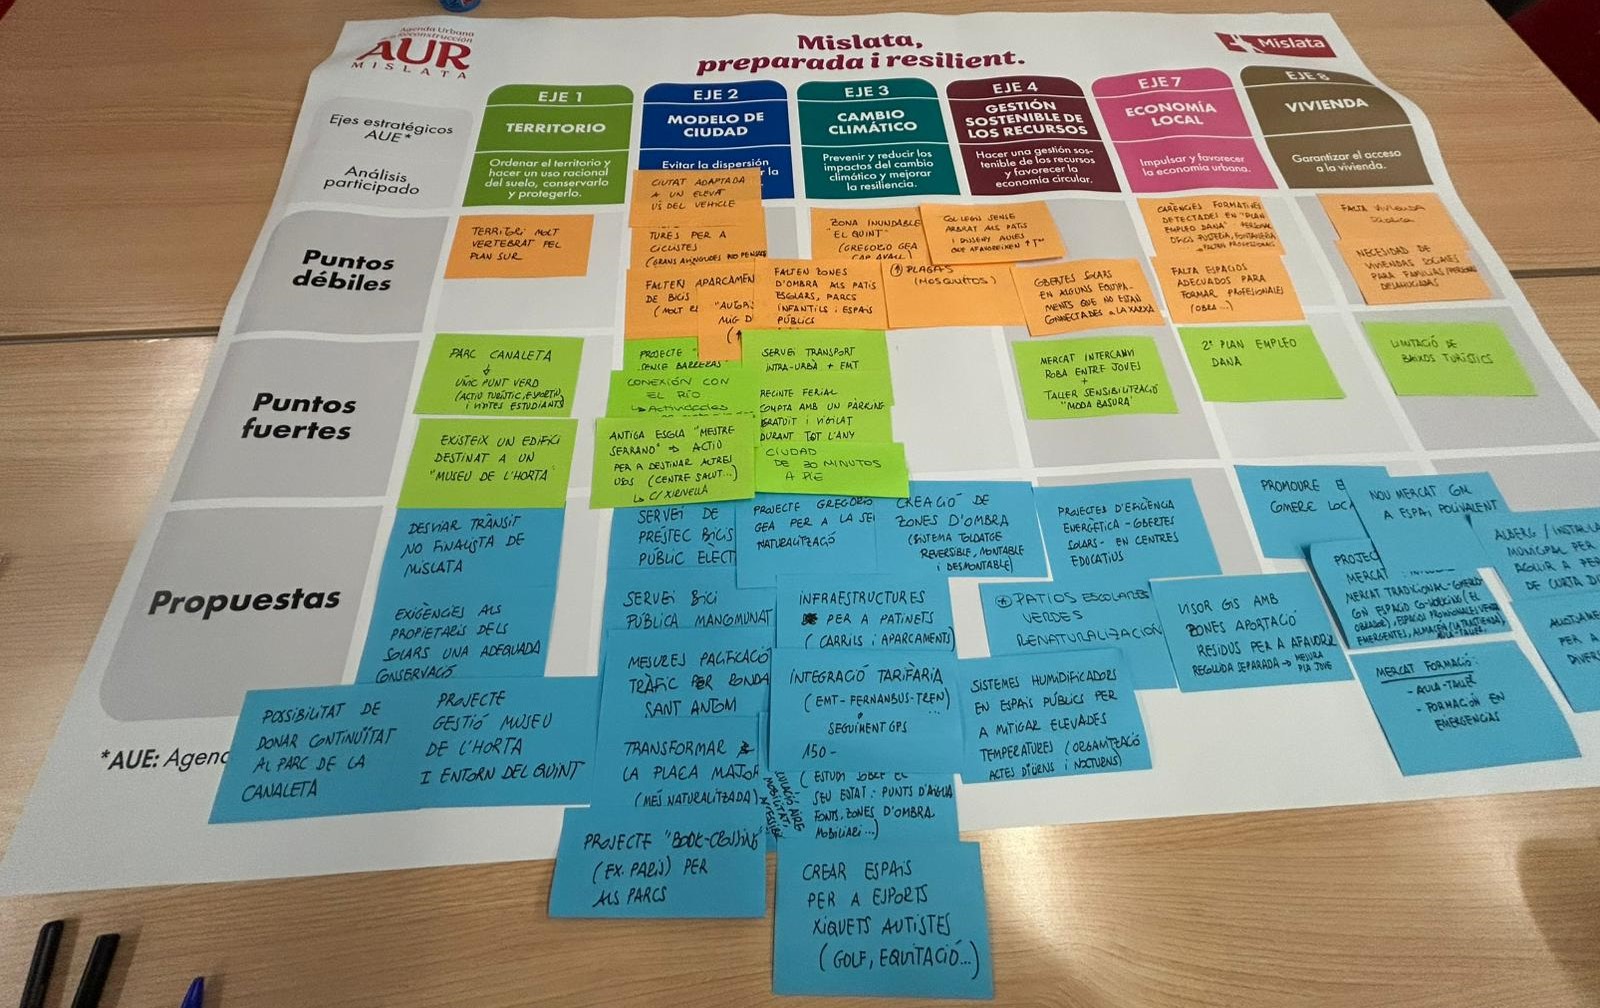 Agenda Urbana
AUR
MISLATA
Mislata,
preparada i resilient.
Mislata
Ejes estratégicos
AUE*
Análisis
participado
EJE 1
TERRITORIO
Ordenar el territorio y
hacer un uso racional
del suelo, conservarlo
y protegerlo.
EJE 2
MODELO DE
CIUDAD
Evitar la dispersión
EJE 3
CAMBIO
CLIMÁTICO
Prevenir y reducir los
impactos del cambio
climático y mejorar
la resiliencia.
EJE 4
GESTIÓN
SOSTENIBLE DE
LOS RECURSOS
Hacer una gestión sos-
tenible de los recursos
y favorecer la
economía circular.
EJE 7
ECONOMÍA
LOCAL
Impulsar y favorecer
la economía urbana.
EJE 8
VIVIENDA
Garantizar el acceso
a la vivienda.
Puntos
débiles
TERRITORI MOLT
VERTEBRAT PEL
PLAN SUR
CIUTAT ADAPTADA
A UN ELEVAT
ÚS DEL VEHICLE
TURES PER A
CICLISTES
FALTEN APARCAMEN
DE BICIS
FALTEN ZONES
D'OMBRA ALS PATIS
ESCOLARS, PARCS
INFANTILS i ESPAIS
PÚBLICS
ZONA INUNDABLE
"EL QUINT"
(GREGORIO GEA
CAP AVALL)
COL·LEGIS SENSE
ARBRAT ALS PATIS
PLAGAS
(MOSQUITOS)
COBERTES SOLARS
EN ALGUNS EQUIPA-
MENTS QUE NO ESTAN
CONNECTADES A LA XARXA
CARÈNCIES FORMATIVES
DETECTADES EN "PLAN
EMPLEO DANA"
FALTA ESPACIOS
ADECUADOS PARA
FORMAR PROFESIONALES
(OBRA...)
FALTA VIVIENDA
NECESIDAD DE
VIVIENDAS SOCIALES
PARA FAMILIAS/PERSONAS
DESAHUCIADAS
Puntos
fuertes
PARC CANALETA
↓
ÚNIC PUNT VERD
(ACTIU TURÍSTIC, ESPORTIU,
i VISITES ESTUDIANTS)
EXISTEIX UN EDIFICI
DESTINAT A UN
"MUSEU DE L'HORTA"
PROJECTE
SENSE BARRERES"
CONEXIÓN CON
EL RÍO
ANTIGA ESCOLA "MESTRE
SERRANO" ⇒ ACTIU
PER A DESTINAR ALTRES
USOS (CENTRE SALUT...)
↳ C/ XIRIVELLA
SERVEI TRANSPORT
INTRA-URBÀ + EMT
RECINTE FERIAL
COMPTA AMB UN PÀRKING
GRATUIT i VIGILAT
DURANT TOT L'ANY
CIUDAD
DE 20 MINUTOS
A PIE
MERCAT INTERCANVI
ROBA ENTRE JOVES
+
TALLER SENSIBILITZACIÓ
"MODA BASURA"
2º PLAN EMPLEO
DANA
LIMITACIÓ DE
BAIXOS TURÍSTICS
Propuestas
DESVIAR TRÀNSIT
NO FINALISTA DE
MISLATA
EXIGÈNCIES ALS
PROPIETARIS DELS
SOLARS UNA ADEQUADA
CONSERVACIÓ
POSSIBILITAT DE
DONAR CONTINUÏTAT
AL PARC DE LA
CANALETA
PROJECTE
GESTIÓ MUSEU
DE L'HORTA
I ENTORN DEL QUINT
SERVEI DE
PRÉSTEC BICIS
PÚBLIC ELÈCT
SERVEI BICI
PÚBLICA MANCOMUNAT
MESURES PACIFICACIÓ
TRÀFIC PER RONDA
SANT ANTONI
TRANSFORMAR
LA PLAÇA MAJOR
(MÉS NATURALITZADA)
PROJECTE "BOOK-CROSSING"
(EX. PARIS) PER
ALS PARCS
PROJECTE GREGORIO
GEA PER A LA SE
NATURALITZACIÓ
INFRAESTRUCTURES
PER A PATINETS
(CARRILS i APARCAMENTS)
INTEGRACIÓ TARIFÀRIA
(EMT-FERNANBUS-TREN)
SEGUIMENT GPS
150-
(ESTUDI SOBRE EL
SEU ESTAT: PUNTS D'AIGUA
FONTS, ZONES D'OMBRA,
MOBILIARI...)
CREAR ESPAIS
PER A ESPORTS
XIQUETS AUTISTES
(GOLF, EQUITACIÓ...)
CREACIÓ DE
ZONES D'OMBRA
(SISTEMA TOLDATGE
REVERSIBLE, MONTABLE
i DESMONTABLE)
PATIOS ESCOLARES
VERDES
RENATURALIZACIÓN
SISTEMES HUMIDIFICADORS
EN ESPAIS PÚBLICS PER
A MITIGAR ELEVADES
TEMPERATURES (ORGANITZACIÓ
ACTES DIÜRNS i NOCTURNS)
PROJECTES D'EFICIÈNCIA
ENERGÈTICA - COBERTES
SOLARS- EN CENTRES
EDUCATIUS
VISOR GIS AMB
ZONES APORTACIÓ
RESIDUS PER A AFAVORIR
RECOLLIDA SEPARADA → MESURA
PLA JOVE
PROMOURE E
COMERÇ LOCA
NOU MERCAT COM
A ESPAI POLIVALENT
PROJEC
MERCAT
MERCAT TRADICIONAL-COMERÇ
CON ESPACIO CO-WORKING (EL
OBRADOR), ESPACIOS PROVISIONALES VENTA
MERCAT FORMACIÓ:
- AULA-TALLER
- FORMACIÓN EN
EMERGENCIAS
ALBERG / INSTAL·LA
MUNICIPAL PER
DE CURTA D
*AUE: Agenc